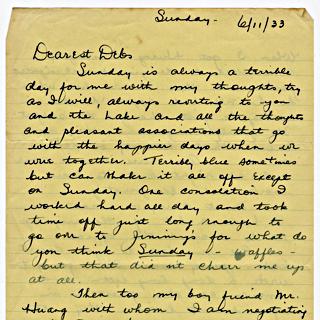 Sunday - 6/11/33
Dearest Debs
Sunday is always a terrible
day for me with my thoughts, try
as I will, always reverting to you
and the Lake and all the thoughts
and pleasant associations that go
with the happier days when we
were together. Terribly blue sometimes
but can shake it all off except
on Sunday. One consolation I
worked hard all day and took
time off just long enough to
go over to Jimmy's for what do
you think Sunday - waffles -
but that did nt cheer me up
at all.
Then too my boy friend Mr.
Huang with whom I am negotiating